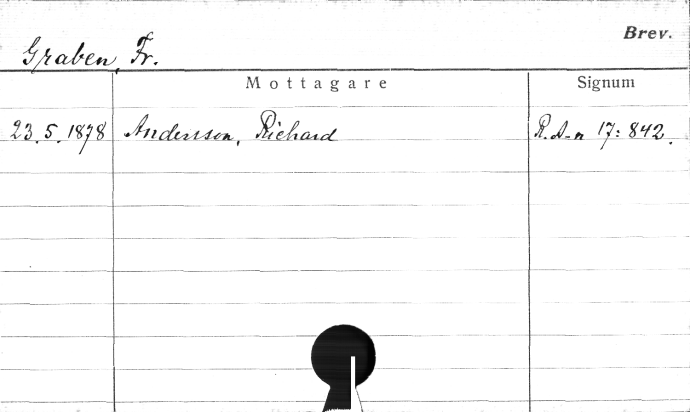 Brev.
Graben, Fr.
Mottagare Signum
23.5.1878 Andersson, Richard R.A-n 17:842.